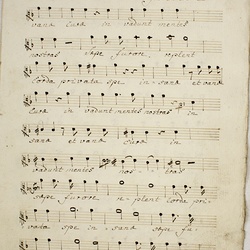 vana cura in vadunt mentes
nostras sæpe furore, replent
corda privata spe insana et vana
cura in vadunt mentes nostras in
sana et vana cura in
vadunt mentes nostras
sæpe furore replent corda pri
vata spe in sana sæpe fu